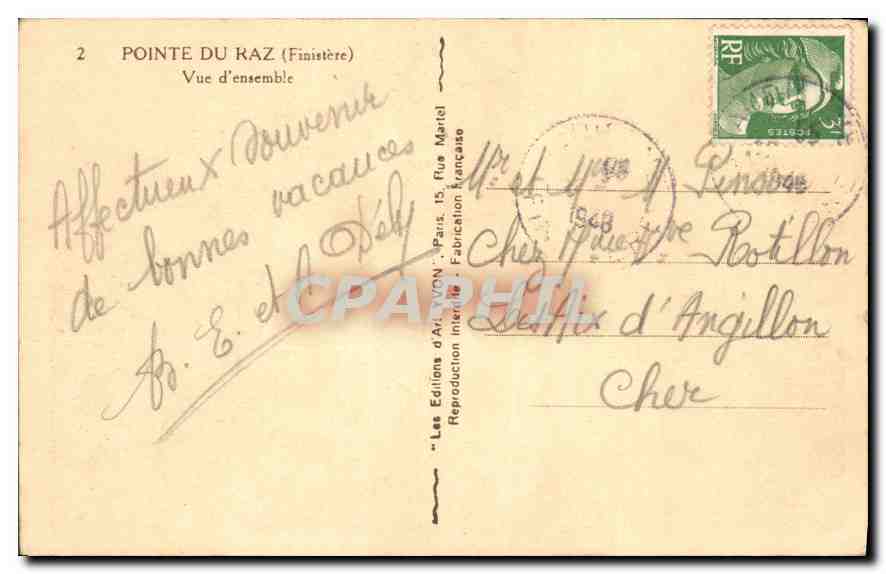 2 POINTE DU RAZ (Finistère)
Vue d'ensemble
Affectueux souvenir
de bonnes vacances
E. et
"Les Editions d'Art YVON". Paris, 15, Rue Martel
Reproduction Interdite. - Fabrication Française
RF
3F
POSTES
1948
948
Mr et Mme
Chez Mme Vve Rotillon
Les Aix d'Angillon
Cher
CPAPHIL